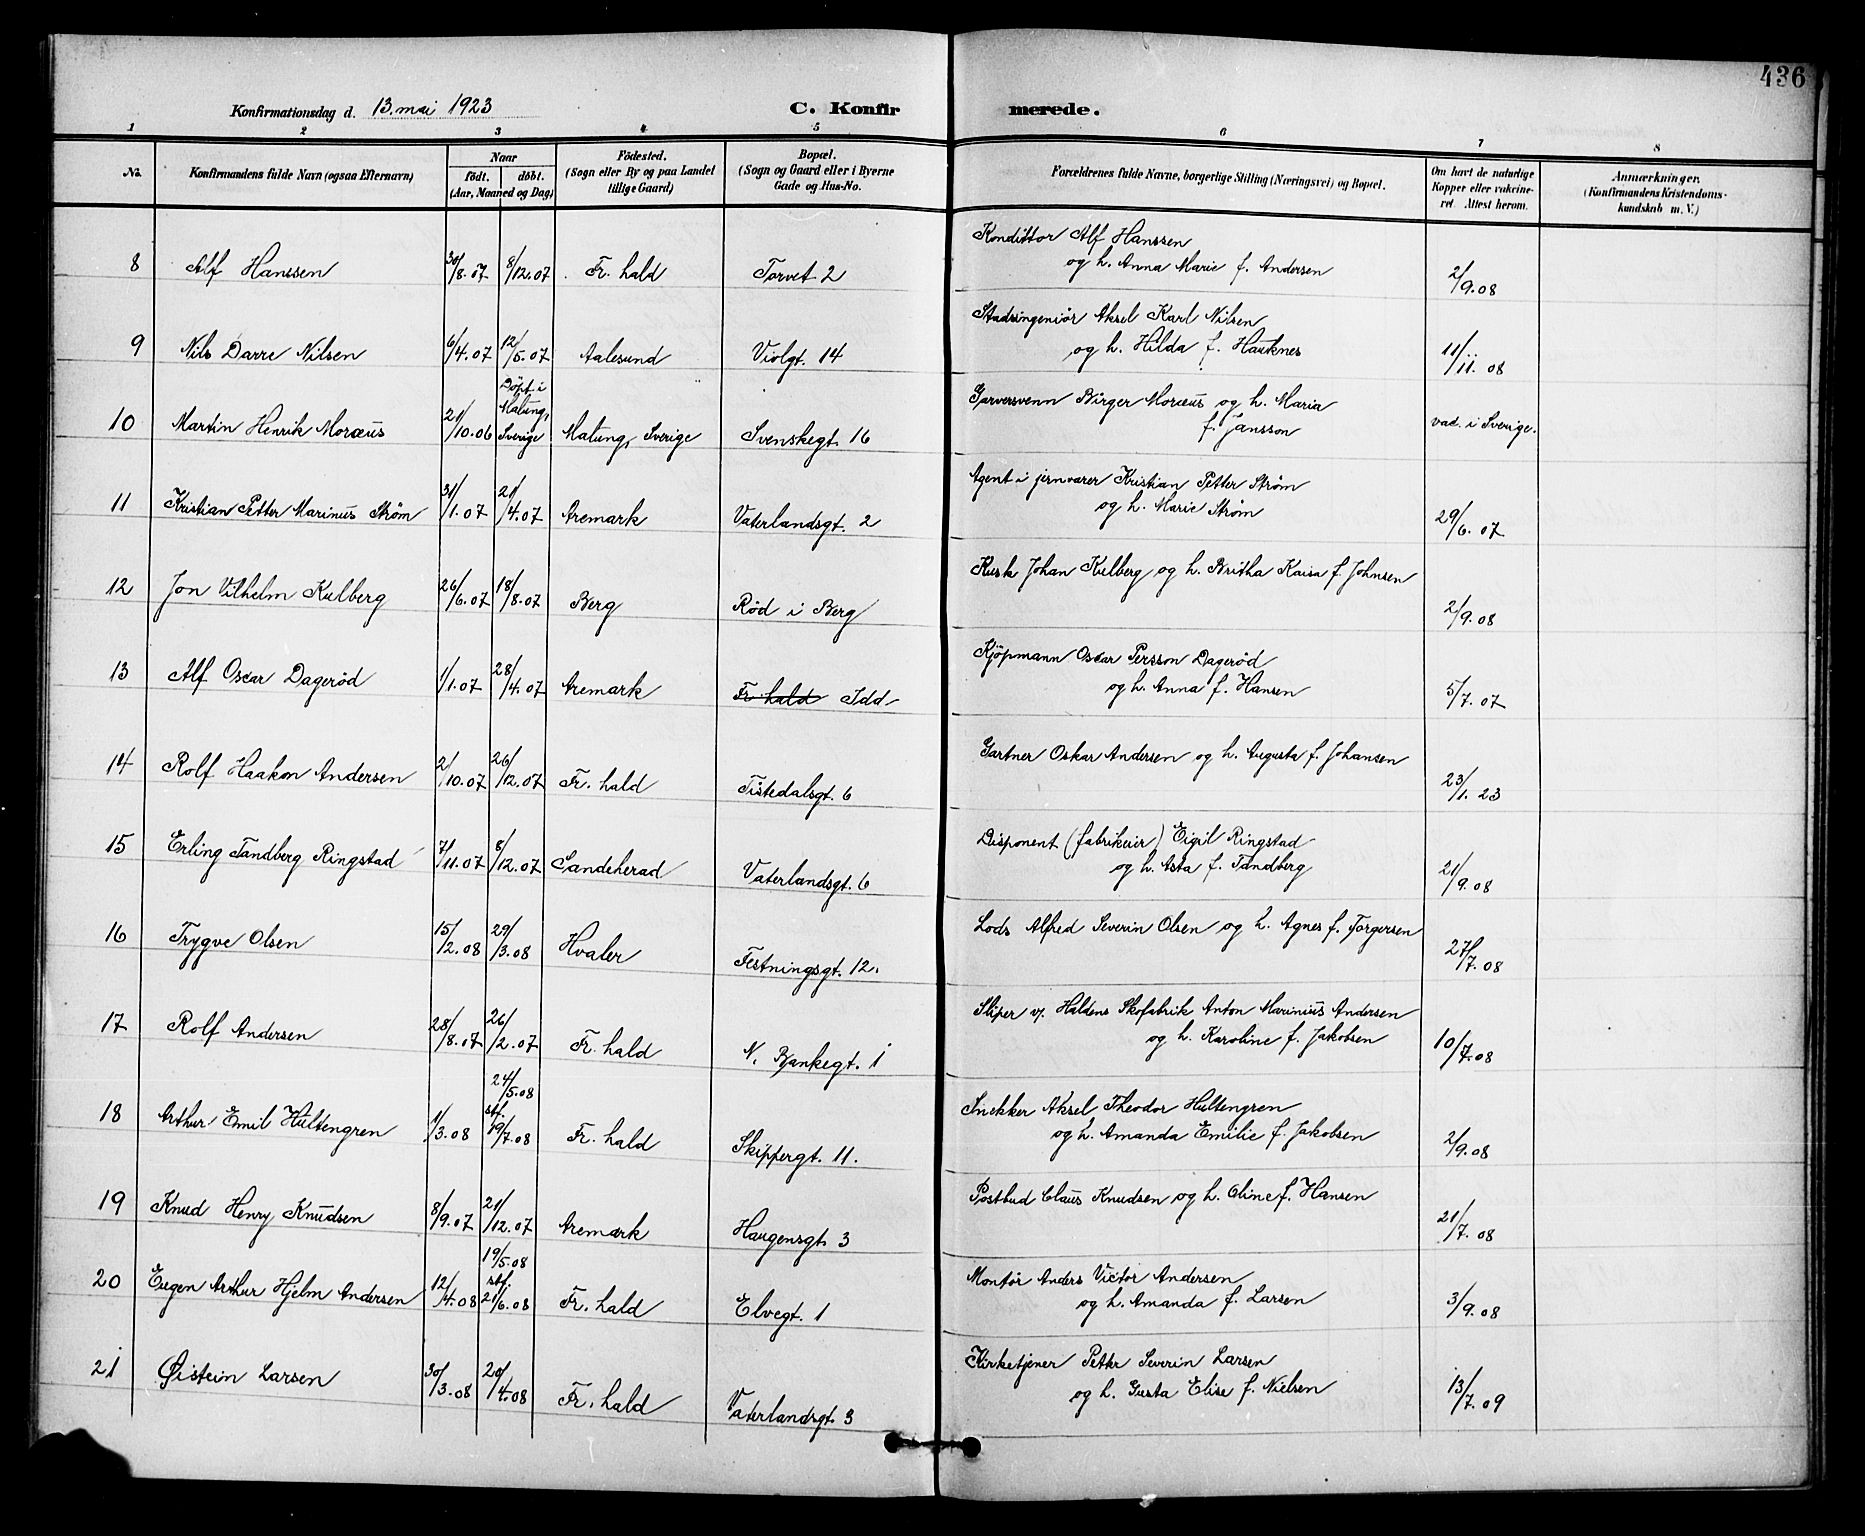 436
Konfirmationsdag d. 13. mai 1923 C. Konfirmerede.
1 2 3 4 5 6 7 8
No. Konfirmandens fulde Navn (ogsaa Efternavn) Naar födt. döbt. (Aar, Maaned og Dag) Födested. (Sogn eller By og paa Landet tillige Gaard) Bopæl. (Sogn og Gaard eller i Byerne Gade og Hus-No. Forældrenes fulde Navne, borgerlige Stilling (Næringsvei) og Bopæl. Om havt de naturlige Kopper eller vakcineret. Attest herom. Anmærkninger. (Konfirmandens Kristendomskundskab m. V.)
8 Alf Hanssen 30/8.07 8/12.07 Fr. hald Torvet 2 Kondittor Alf Hanssen
og h. Anna Marie f. Andersen 2/9.08
9 Nils Darre Nilsen 6/4.07 12/5.07 Aalesund Violgt. 14 Stadsingeniör Aksel Karl Nilsen
og h. Hilda f. Hauknes 11/11.08
10 Martin Henrik Moræus 21/10.06 Döpt i Malung, Sverige Malung, Sverige Svenskegt. 16 Garversvenn Birger Moræus og h. Maria
f. Jansson vac. i Sverige.
11 Kristian Petter Marinus Strøm 31/1.07 21/4.07 Aremark Vaterlandsgt. 2 Agent i jernvarer Kristian Petter Strøm
og h. Marie Strøm 29/6.07
12 Jon Vilhelm Kulberg 26/6.07 18/8.07 Berg Röd i Berg Kusk Johan Kulberg og h. Britha Kaisa f. Johnsen
2/9.08
13 Alf Oscar Dageröd 1/1.07 28/4.07 Aremark Fr. hald Idd Kjöpmann Oscar Persson Dageröd
og h. Anna f. Hansen 5/7.07
14 Rolf Haakon Andersen 2/10.07 26/12.07 Fr. hald Tistedalsgt. 6 Gartner Oskar Andersen og h. Augusta f. Johansen
23/1.23
15 Erling Tandberg Ringstad 7/11.07 8/12.07 Sandeherad Vaterlandsgt. 6 Disponent (fabrikeier) Eigil Ringstad
og h. Asta f. Tandberg 21/9.08
16 Trygve Olsen 15/2.08 29/3.08 Hvaler Festningsgt. 12. Lods Alfred Severin Olsen og h. Agnes f. Torgersen
27/7.08
17 Rolf Andersen 28/8.07 26/2.07 Fr. hald N. Bankegt. 1 Sliper v. Haldens Skofabrik Anton Marinius Andersen
og h. Karoline f. Jakobsen 10/7.08
18 Arthur Emil Hultengren 1/3.08 24/5.08 stf. 19/7.08 Fr. hald Skippergt. 11. Snekker Aksel Theodor Hultengren
og h. Amanda Emilie f. Jakobsen 2/9.08
19 Knud Henry Knudsen 8/9.07 21/12.07 Aremark Haugensgt. 3 Postbud Claus Knudsen og h. Oline f. Hansen
21/7.08
20 Eugen Arthur Hjelm Andersen 12/4.08 19/5.08 stf. 21/6.08 Fr. hald Elvegt. 1 Montör Anders Victor Andersen
og h. Amanda f. Larsen 3/9.08
21 Øistein Larsen 30/3.08 20/4.08 Fr. hald Vaterlandsgt. 3 Kirketjener Petter Severin Larsen
og h. Gusta Elise f. Nielsen 13/7.09